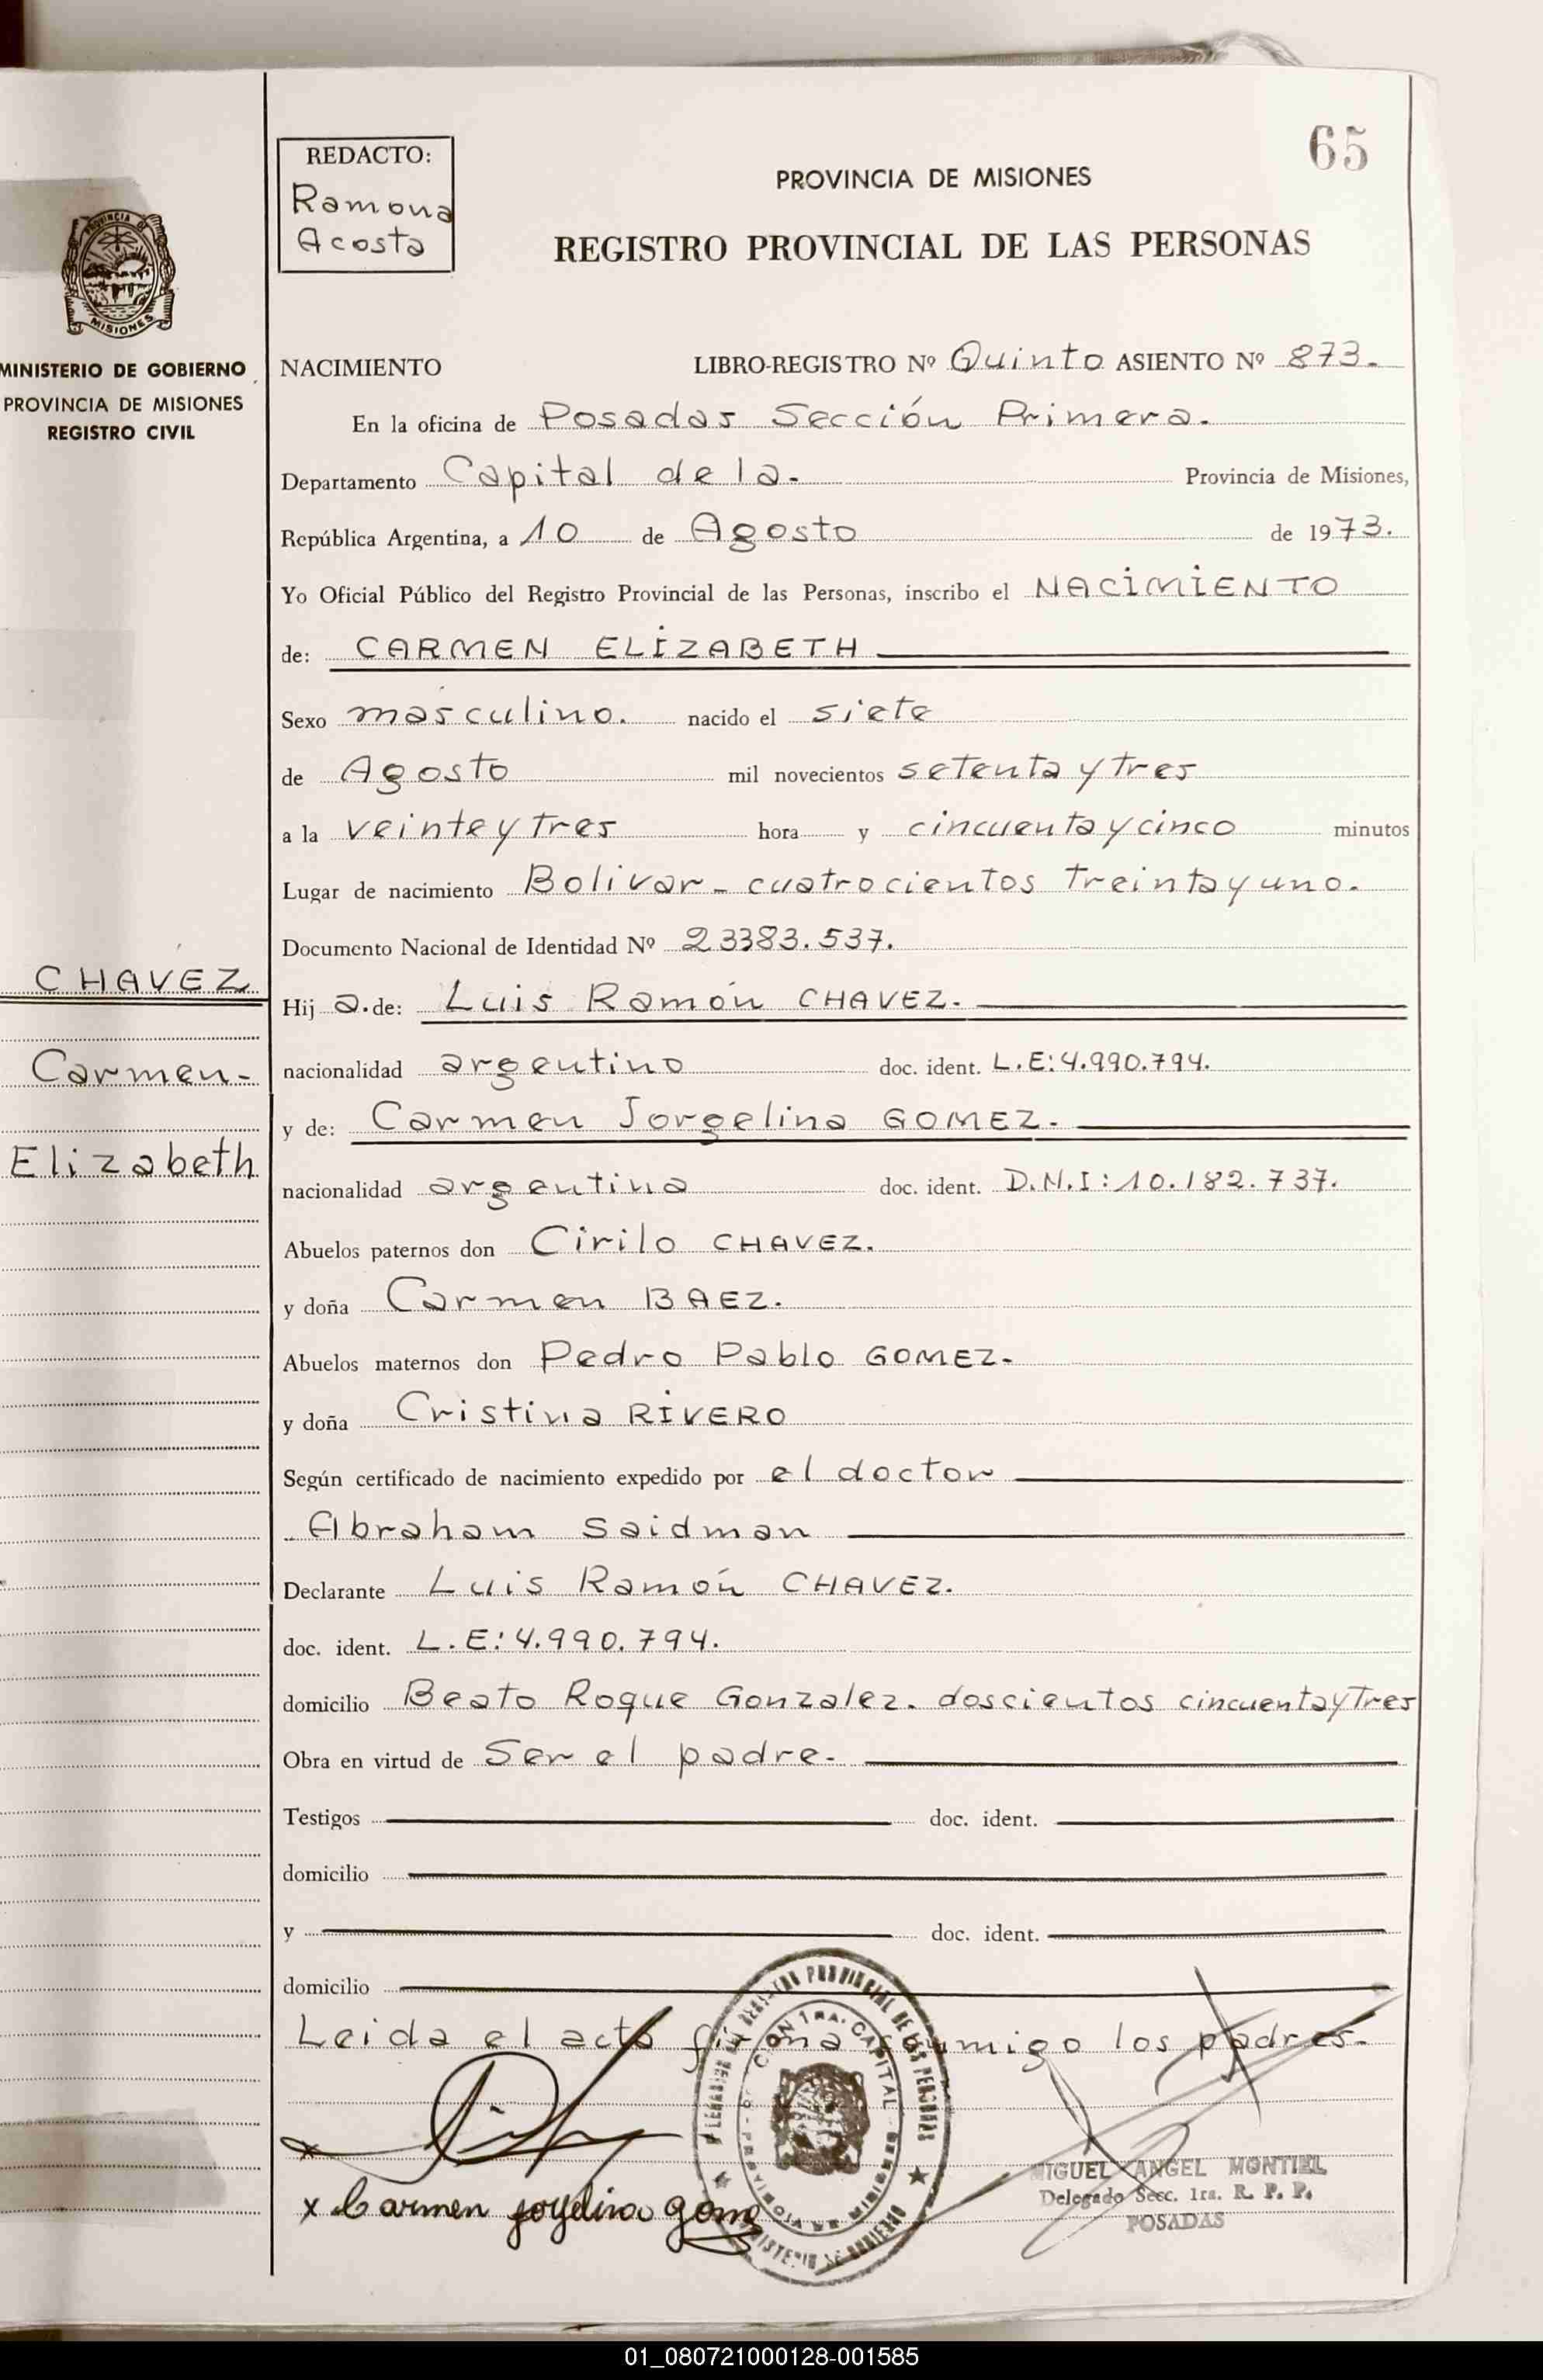 65
REDACTO:
Ramona
Acosta
PROVINCIA DE MISIONES
REGISTRO PROVINCIAL DE LAS PERSONAS
PROVINCIA DE
MISIONES
MINISTERIO DE GOBIERNO
PROVINCIA DE MISIONES
REGISTRO CIVIL
NACIMIENTO LIBRO-REGISTRO Nº Quinto ASIENTO Nº 873.
En la oficina de Posadas Sección Primera.
Departamento Capital de la. Provincia de Misiones,
República Argentina, a 10 de Agosto de 1973.
Yo Oficial Público del Registro Provincial de las Personas, inscribo el NACIMIENTO
de: CARMEN ELIZABETH
Sexo masculino. nacido el siete
de Agosto mil novecientos setenta y tres
a la veinte y tres hora y cincuenta y cinco minutos
Lugar de nacimiento Bolivar - cuatrocientos treinta y uno.
Documento Nacional de Identidad Nº 23383.537.
CHAVEZ
Carmen-
Elizabeth
Hij a. de: Luis Ramón CHAVEZ.
nacionalidad argentino doc. ident. L.E:4.990.794.
y de: Carmen Jorgelina GOMEZ.
nacionalidad argentina doc. ident. D.N.I:10.182.737.
Abuelos paternos don Cirilo CHAVEZ.
y doña Carmen BAEZ.
Abuelos maternos don Pedro Pablo GOMEZ.
y doña Cristina RIVERO
Según certificado de nacimiento expedido por el doctor
Abraham Saidman
Declarante Luis Ramón CHAVEZ.
doc. ident. L.E:4.990.794.
domicilio Beato Roque Gonzalez. doscientos cincuenta y Tres
Obra en virtud de Ser el padre.
Testigos doc. ident.
domicilio
y doc. ident.
domicilio
Leida el acta firma conmigo los padres.
REGISTRO PROVINCIAL DE LAS PERSONAS
CION 1RA. CAPITAL
MINISTERIO DE GOBIERNO
x
x Carmen Jorgelina Gomez
MIGUEL ANGEL MONTIEL
Delegado Secc. 1ra. R. P. P.
POSADAS
01_080721000128-001585